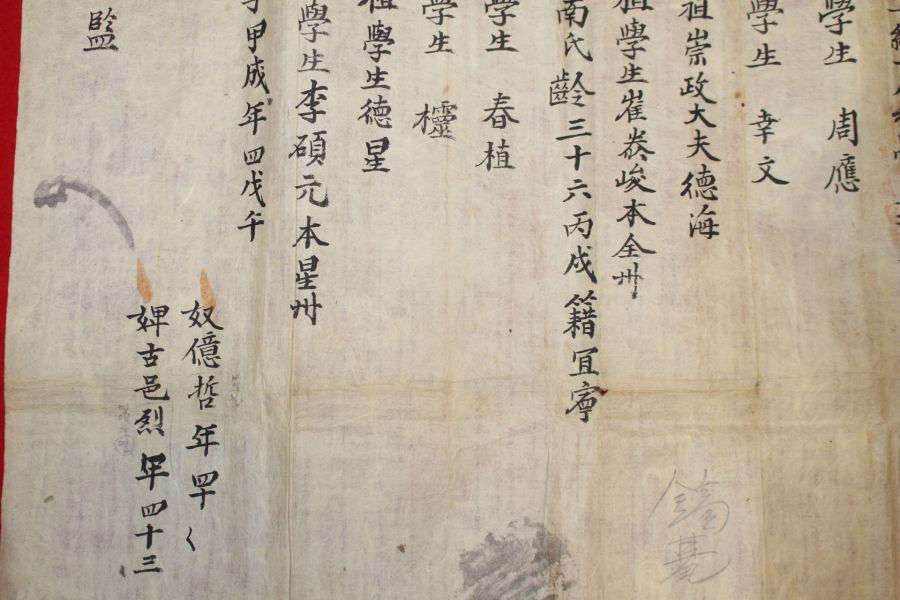 學生 周應
學生 幸文
祖崇政大夫德海
祖學生崔 峻本全州
南氏齡三十六丙戌 籍宜寧
學生 春植
學生 欞
祖學生德星
學生李碩元本星州
子甲成年四戊午
奴億哲年四十
婢古邑烈年四十三
監